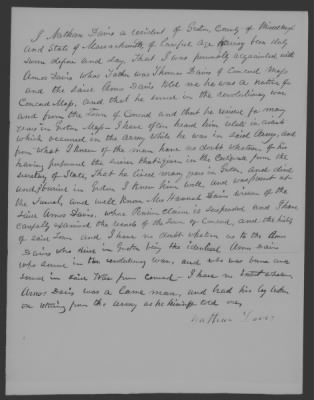 I Nathan Davis a resident of Groton, County of Middlesex
and State of Massachusetts, of lawful age having been duly
sworn depose and say, That I was personally acquainted with
Amos Davis whose Father was Thomas Davis of Concord Mass
and the said Amos Davis told me he was a native of
Concord Mass, and that he served in the revolutionary war
and from the Town of Concord and that he resided for many
years in Groton Mass - I have often heard him relate incidents
which occurred in the army while he was in said Army, and
from what I knew of the man have no doubt whatever of his
having performed the service that is given in the Certificate from the
Secretary of State, That he lived many years in Groton, and died
and buried in Groton, I knew him well, and was present at
the funeral, and well know Mrs Hannah Davis widow of the
said Amos Davis, whose Pension claim is suspended and I have
carefully examined the records of the Town of Concord, and the history
of said Town and I have no doubt whatever as to the Amos
Davis who died in Groton being the identical Amos Davis
who served in the revolutionary war, and who was
served in said Town from Concord - I have no doubt
Amos Davis was a lame man, and had his leg broken
on returning from the army as he himself told me
Nathan Davis